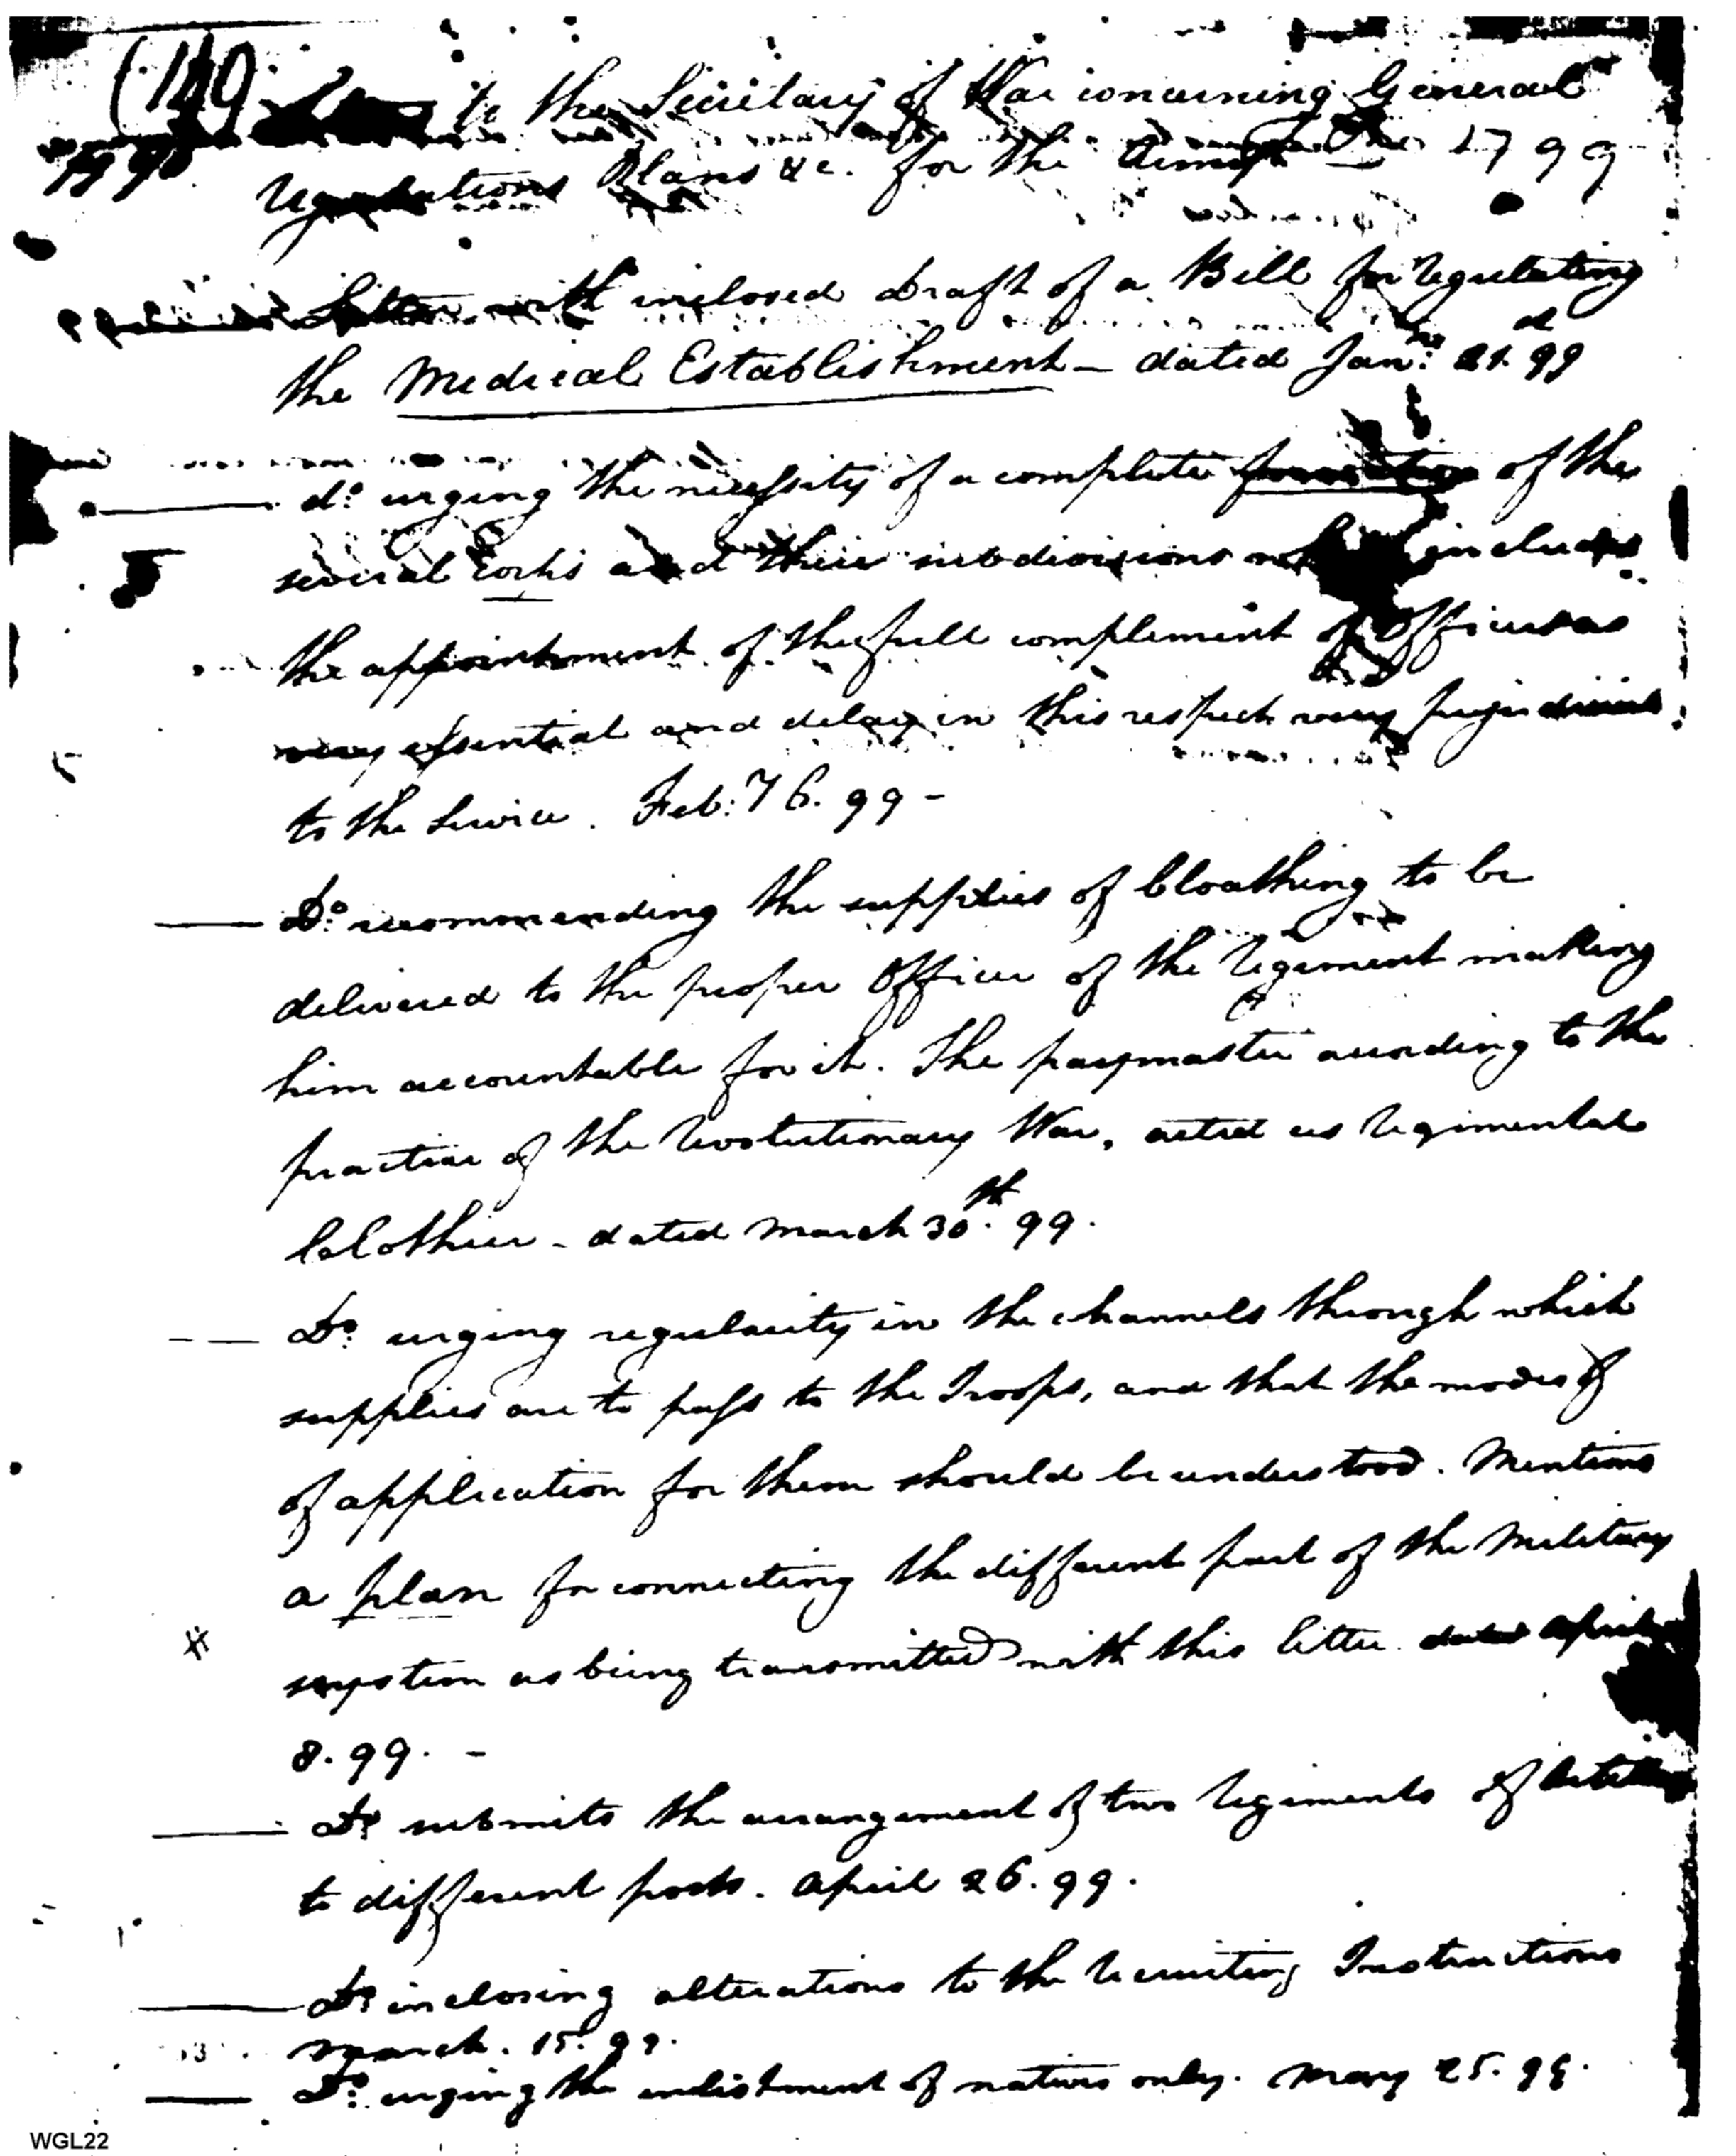 (149
to the Secretary of War concerning General
regulations Plans &c. for the Army 1799
Letter with inclosed draft of a Bill for regulating
the Medical Establishment - dated Jany. 21.st 99
do. urging the necessity of a complete of the
several Corps and their subdivisions includes
the appointment of the full complement of Officers as
very essential and delay in this respect very prejudicial
to the Service. Feb: 76. 99 -
Do. recommending the supplies of Cloathing to be
delivered to the proper Officer of the regiment making
him accountable for it. The paymaster according to the
practice of the revolutionary War, acted as regimental
Clothier - dated March 30th. 99.
Do. urging regularity in the channels through which
supplies are to pass to the Troops, and that the modes of
of application for them should be understood. Mentions
a plan for connecting the different part of the Military
system as being transmitted with this letter dated April
8. 99. -
Do. submits the arrangement of two regiments of
to different posts. April 26. 99.
Do. inclosing alterations to the recruiting Instructions
March. 15. 99.
Do. urging the enlistment of natives only. May 25. 99.
WGL22